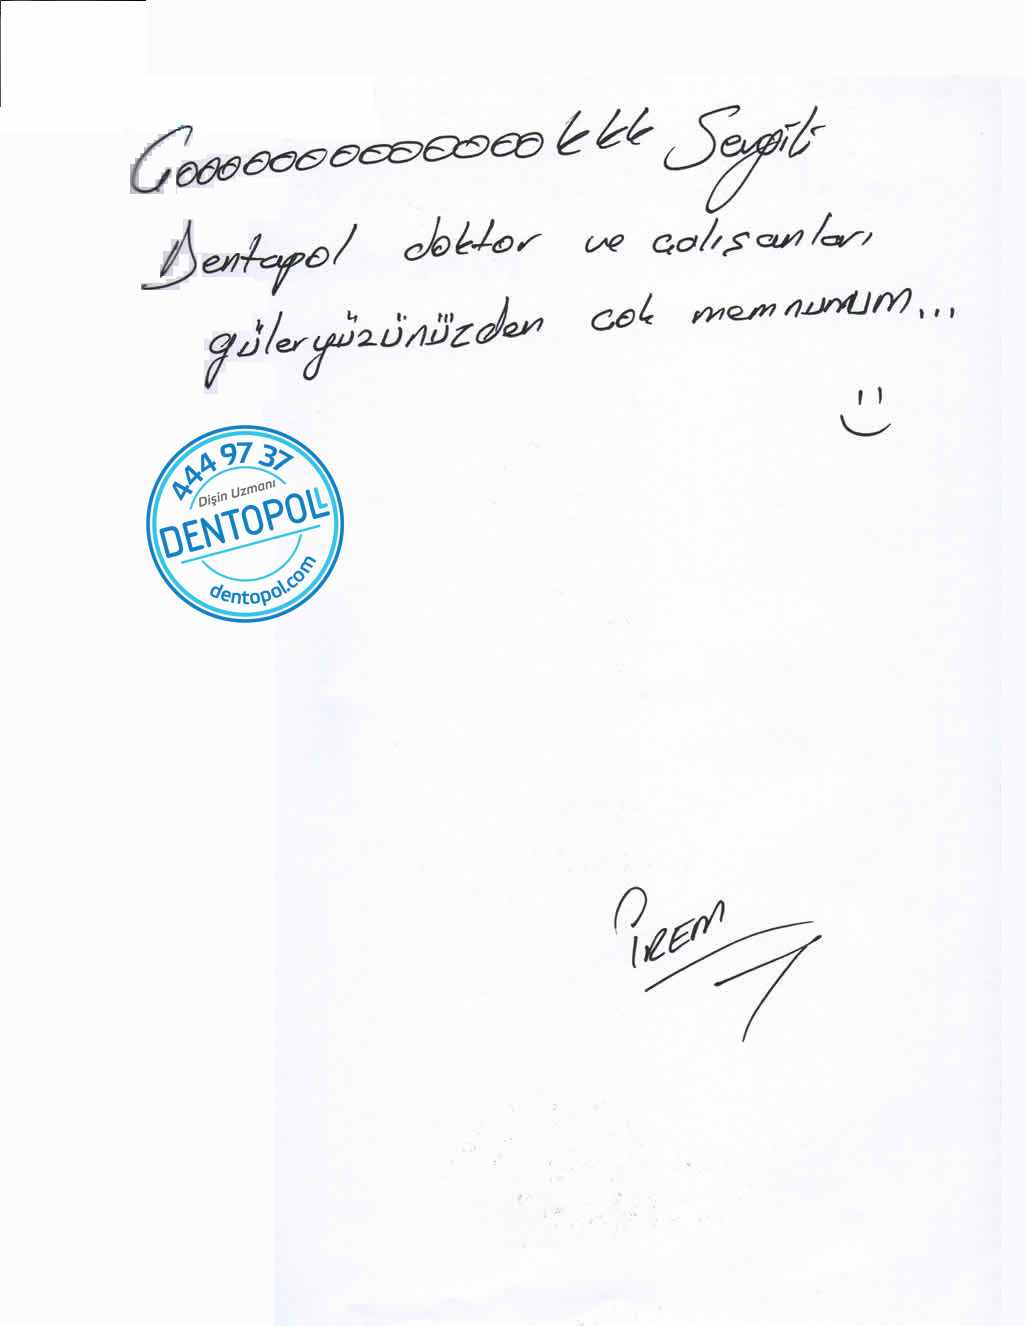 Coooooooooooookkk Sevgili
Dentapol doktor ve calışanları
güleryüzünüzden cok memnumum...
444 97 37
Dişin Uzmanı
DENTOPOL
dentopol.com
İREM